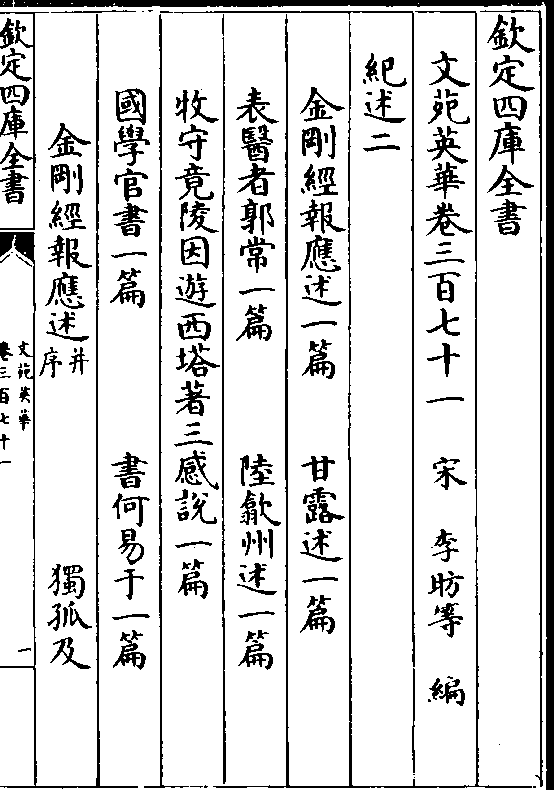 欽定四庫全書
文苑英華卷三百七十一　宋　李昉等　編
紀述二
金剛經報應述一篇　甘露述一篇
表醫者郭常一篇　陸歙州述一篇
牧守竟陵因遊西塔著三感說一篇
國學官書一篇　書何易于一篇
金剛經報應述并序　獨孤及
欽定四庫全書
文苑英華
卷三百七十一
一